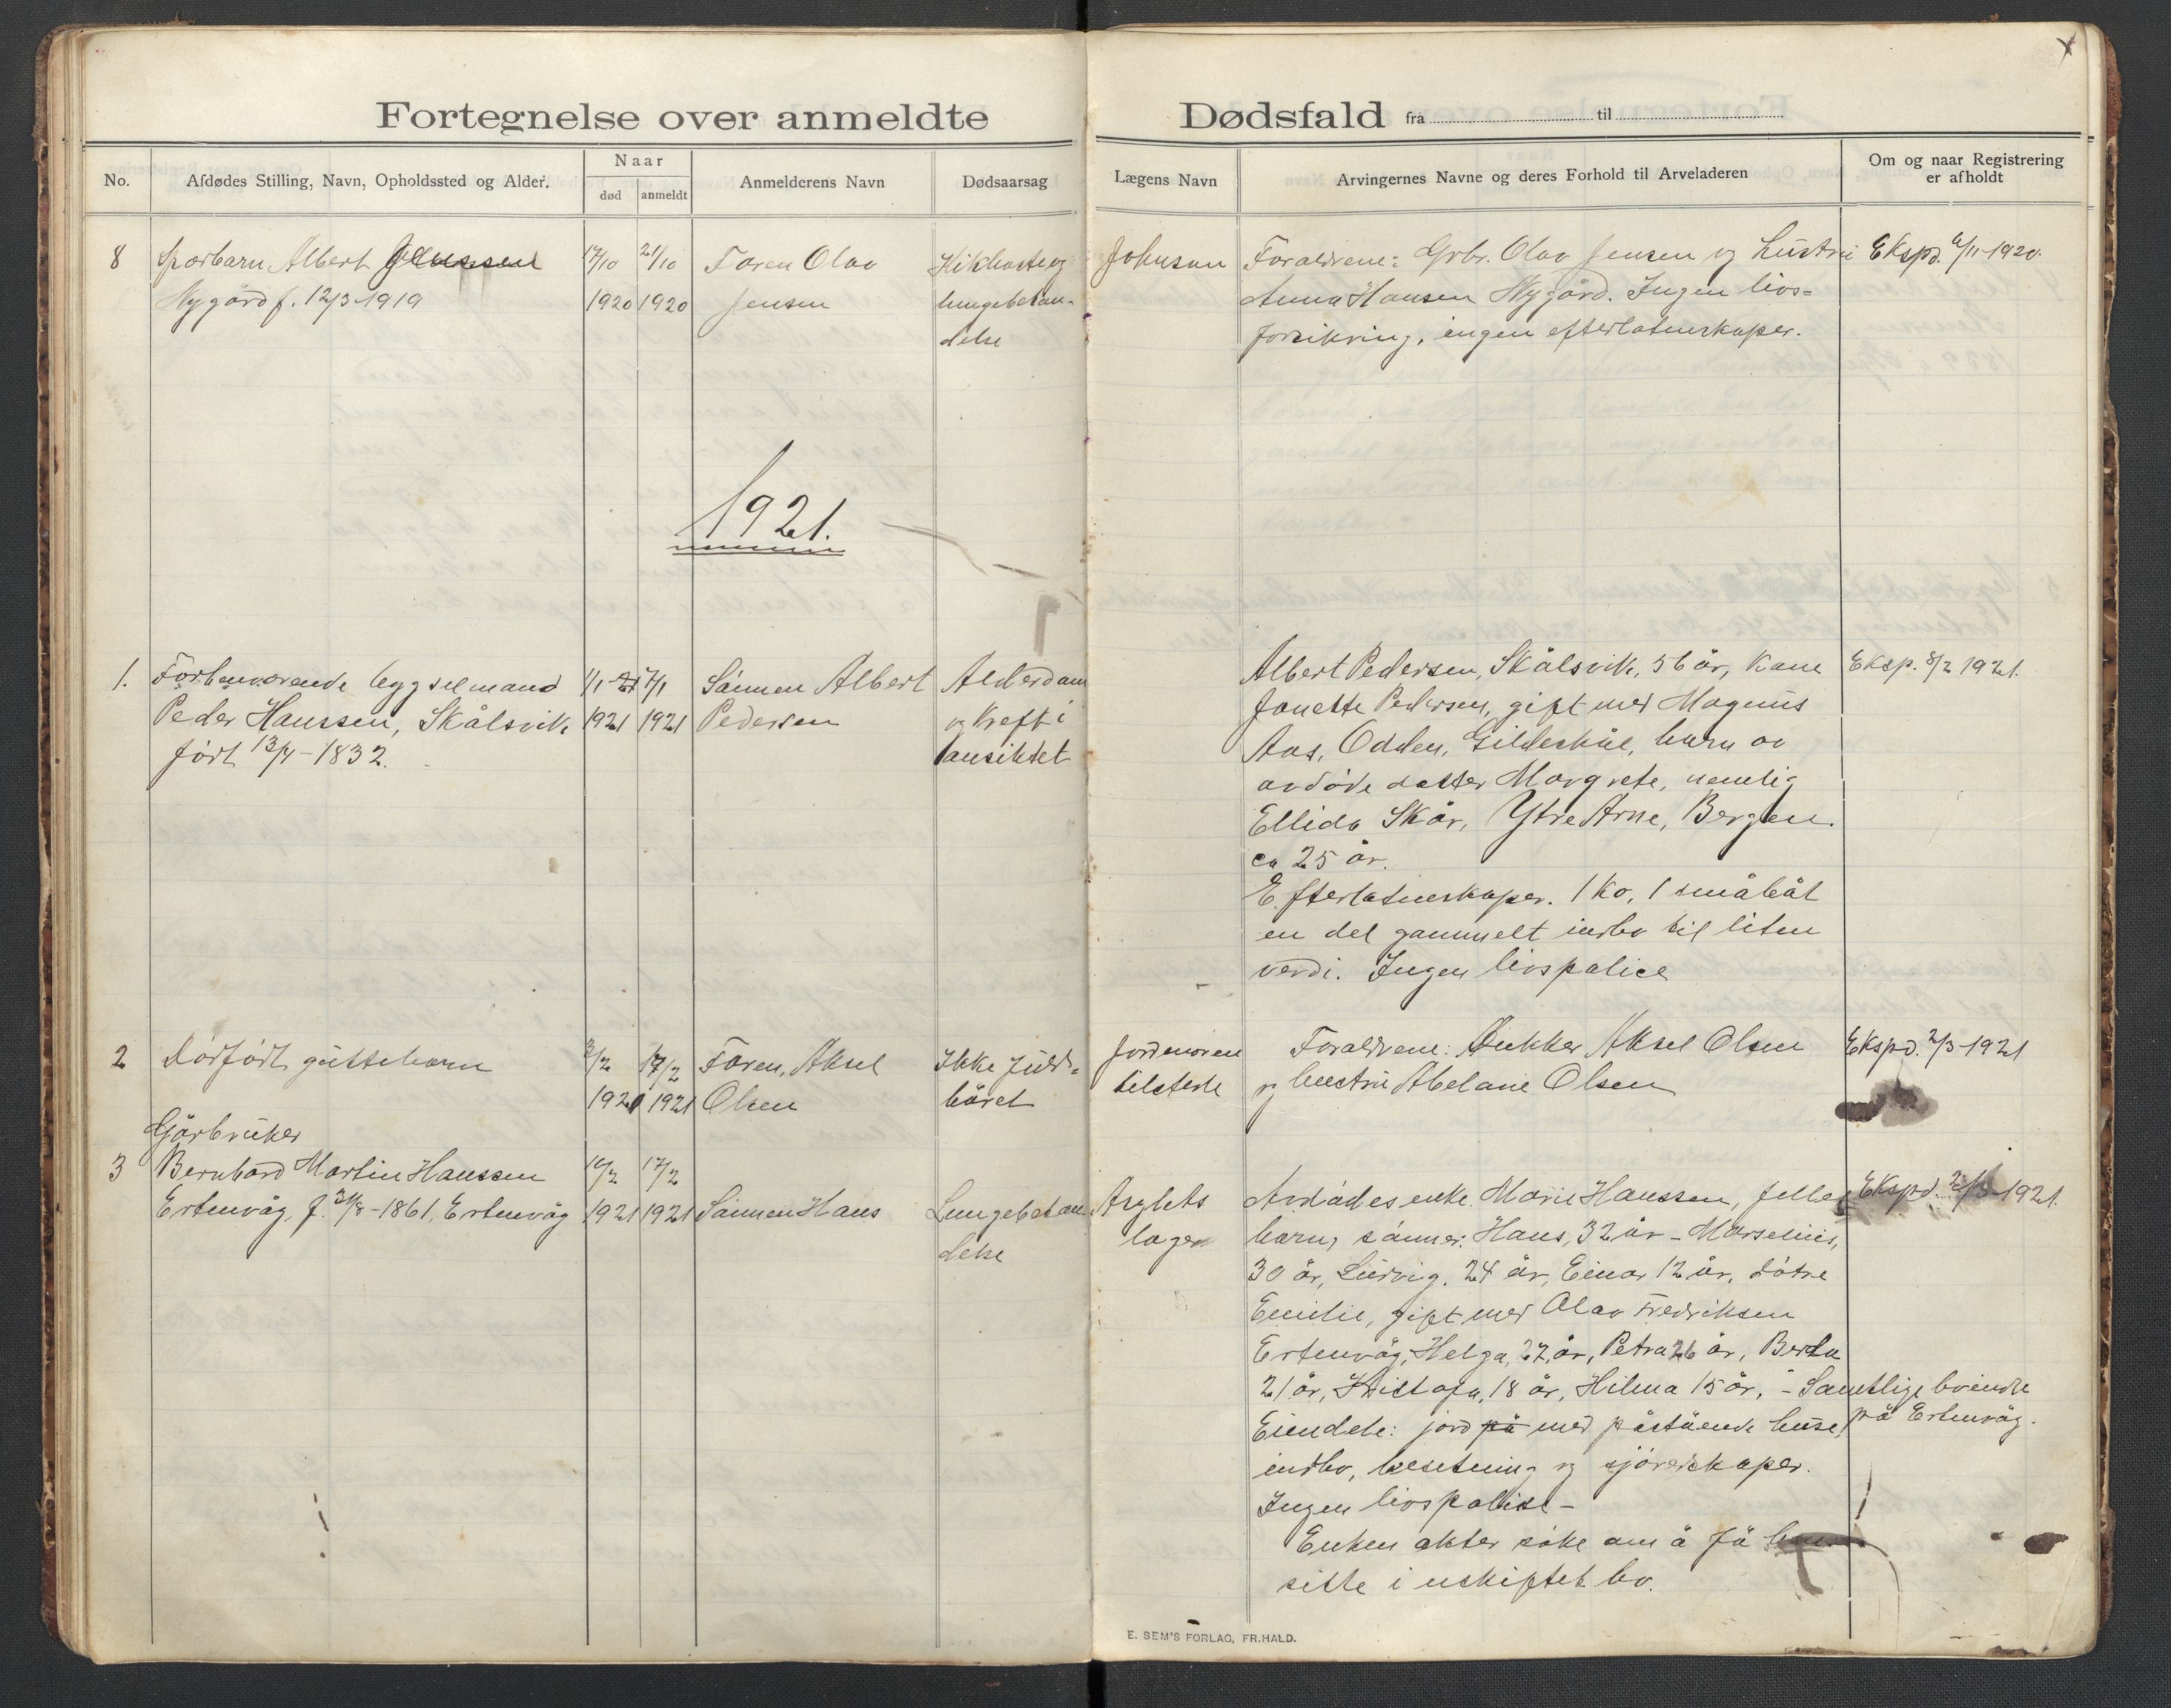 Fortegnelse over anmeldte Dødsfald fra til
No.
Afdødes Stilling, Navn, Opholdssted og Alder.
Naar
død
anmeldt
Anmelderens Navn
Dødsaarsag
Lægens Navn
Arvingernes Navne og deres Forhold til Arveladeren
Om og naar Registrering
er afholdt
8
Spærbarn Albert Jenssen
Nygård f. 12/3-1919
17/10
1920
21/10
1920
Faren Olav
Jensen
Kikhoste og
lungebetæn-
delse
Johnson
Foraldrene: Grbr. Olav Jensen og hustru
Anna Hansen Nygård. Ingen livs=
forsikring, ingen efterlatenskaper.
Ekspd. 9/11-1920.
1921.
1.
Forhenværende byggselmand
Peder Hanssen, Skålsvik
født 13/4-1832.
1/1
1921
7/1
1921
Sønnen Albert
Pedersen
Alderdom
og kreft i
ansiktet
Albert Pedersen, Skålsvik, 56 år, kone
Jonette Pedersen, gift med Magnus
Aas, Odden, Gildeskål, barn av
avdøde datter Margrete, nemlig
Ellida Skår, Ytre Arne, Bergen.
ca 25 år.
Efterlatenskaper. 1 ko, 1 småbåt
en del gammelt indbo til liten
verdi. Ingen livspolice
Eksp. 8/2 1921.
2
Dødfødt guttebarn
3/2
1921
17/2
1921
Faren, Aksel
Olsen
Ikke fuld=
båret
Jordmoren
tilstede
Foraldrene: Aksel Olsen
og hustru Abelone Olsen
Ekspd. 2/3-1921
Gårbruker
3
Bernhard Martin Hanssen
Ertenvåg, f. 31/8-1861, Ertenvåg
10/2
1921
17/2
1921
Sønnen Hans
Lungebetæn
delse
Arghts
læge
Avdødes enke Marie Hanssen, felles
barn, sønner: Hans, 32 år - Marselius,
30 år, Ludvig. 24 år, Einar 12 år, døtre
Emilie, gift med Olav Fredriksen
Ertenvåg, Helga, 27 år, Petra 26 år, Berta
21 år, Kristofa, 18 år, Hilma 15 år, - Samtlige boende
på Ertenvåg.
Eiendele: jord på med påstående huse,
indbo, besetning og sjøredskaper.
Ingen livspolise -
Enken akter søke om å få
sitte i uskiftet bo.
Ekspd. 2/3-1921.
E. SEM'S FORLAG, FR.HALD.